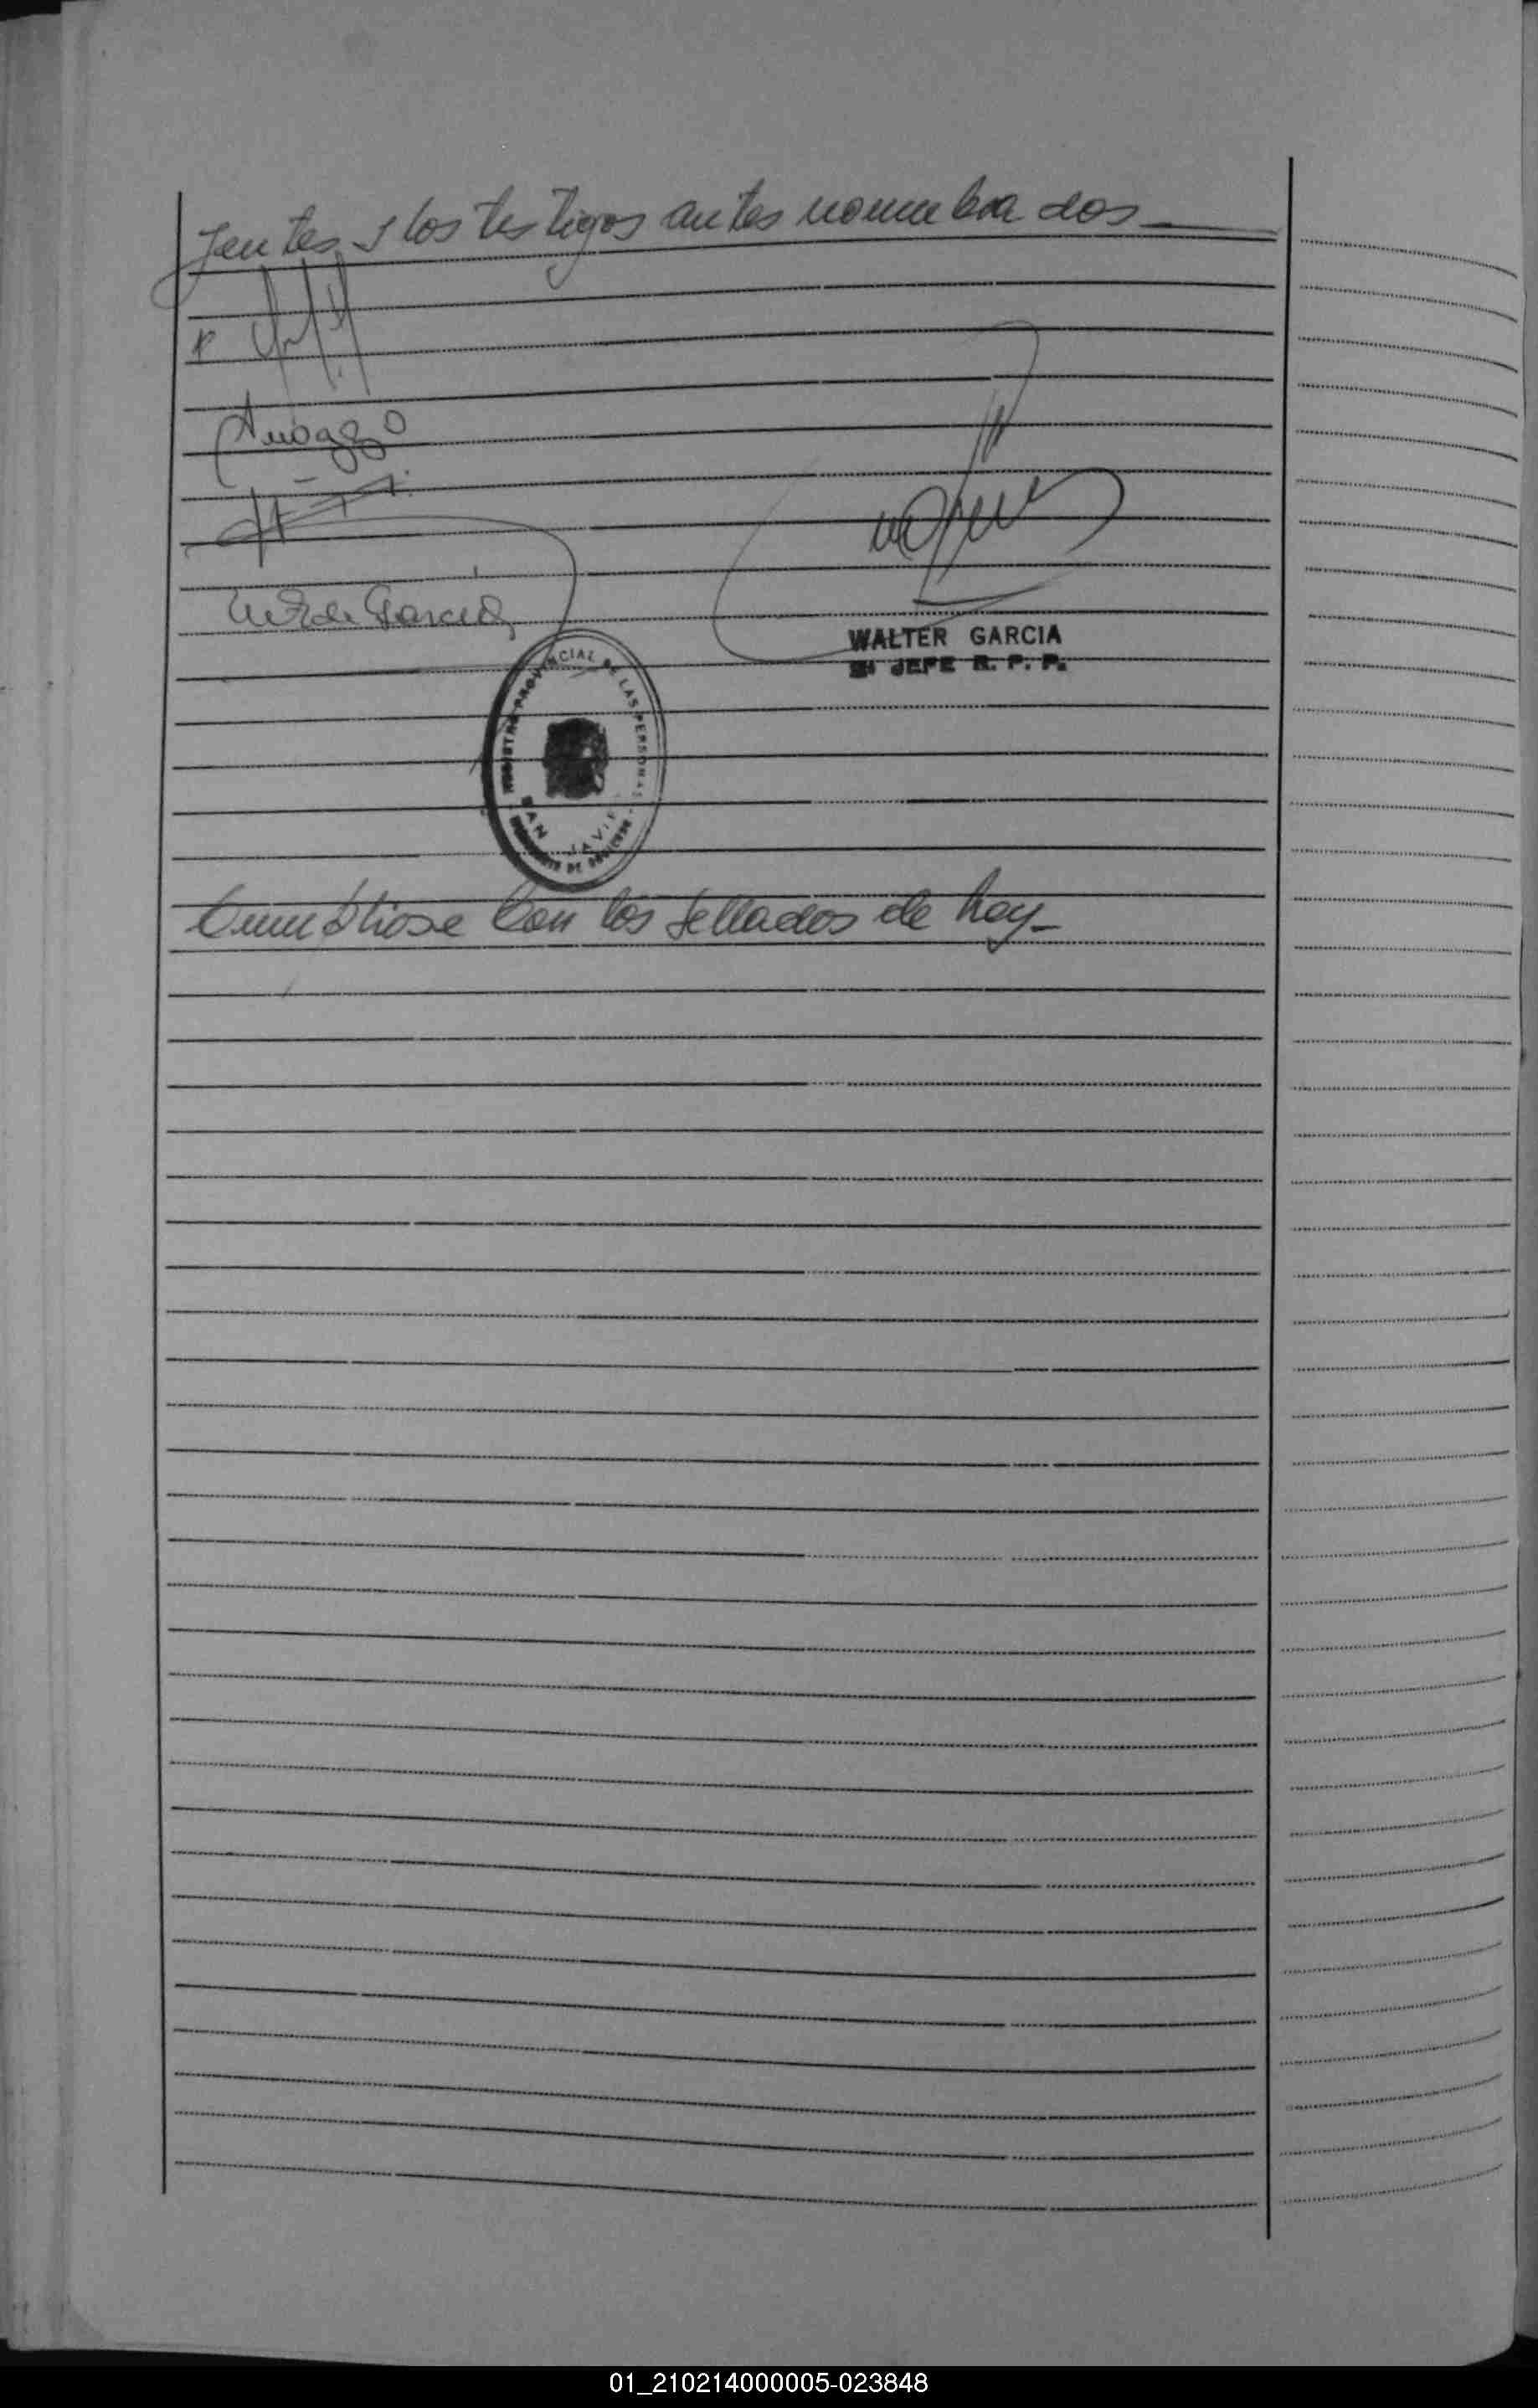 yentes y los testigos antes nombrados
Amoggo
de Garcia
WALTER GARCIA
JEFE R. P. P.
REGISTRO PROVINCIAL DE LAS PERSONAS
SAN JAVIER
Cumpliose con los sellados de hoy
01_210214000005-023848